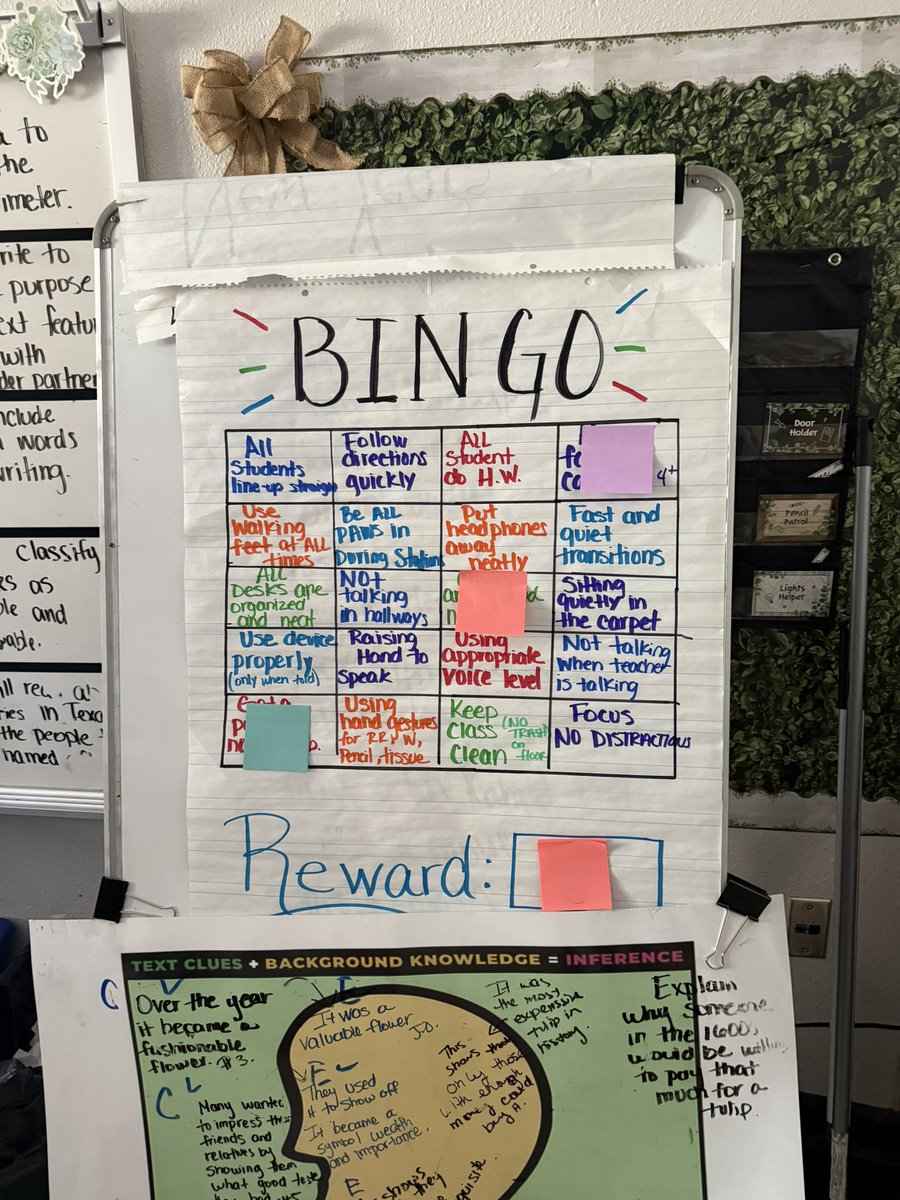 to
the
imeter.
rite to
purpose
ext featur
with
der partner
nclude
words
writing.
Classify
es as
ble and
rable.
ries in Texa
the people
named
BINGO
All
Students
line-up straight
Follow
directions
quickly
ALL
Student
do H.W.
4+
Use
Walking
feet at ALL
times
Be ALL
PAWS in
During Stations
Put
headphones
away
neatly
Fast and
quiet
transitions
All
Desks are
organized
and neat
NOt
talking
in hallways
Sitting
quietly in
the carpet
Use device
properly
(only when told)
Raising
Hand to
Speak
Using
appropriate
Voice level
Not talking
when teacher
is talking
Using
hand gestures
for RR, W,
Pencil, tissue
Keep
Class
Clean
(NO
TRASH
on
floor
Focus
NO DISTRACTIONS
Reward:
Door
Holder
Pencil
Patrol
Lights
Helper
TEXT CLUES + BACKGROUND KNOWLEDGE = INFERENCE
C
Over the year
it became a
fashionable
flower. #3.
C
Many wanted
to impress
friends and
relatives by
showing them
what good taste
E
It was a
valuable flower
J.O.
E
They used
it to show off
It became a
symbol wealth
and importance.
E
shows
they
It was
the most
expensive
tulip in
history.
This
shows that
only those
with enough
money could
buy it.
Explain
why someone
in the 1600s
would be willing
to pay that
much for a
tulip.